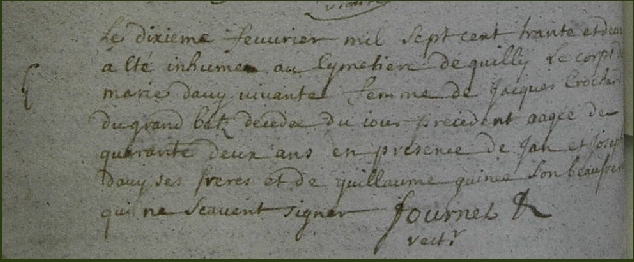 Le dixieme feuurier mil sept cent trante et deux
a Eté inhumee au Cymetiere de quilly Le corps de
marie dauy vivante femme de Jacques Crochard
du grand betz décedee du iour precedent aagee de
quarante deux ans en presence de Jan et Joseph
dauy ses freres et de guillaume guinié son beaufrere
qui ne Scavent signer fournel
rect.r